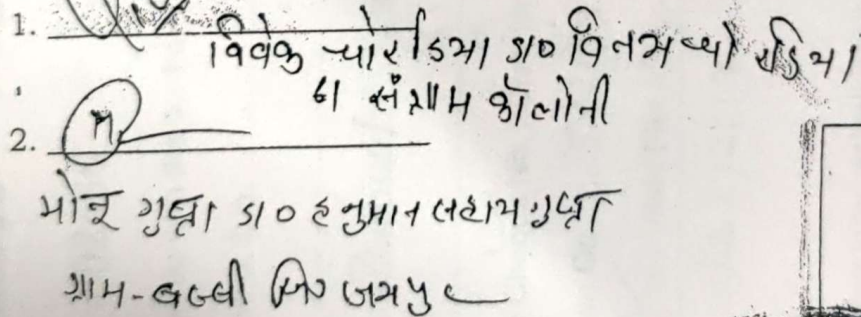 1.
विवेक चोरडिया S/O विनय चोरडिया
61 संग्राम कॉलोनी
2.
मोनू गुप्ता S/O हनुमान सहाय गुप्ता
ग्राम - बस्सी जि० जयपुर